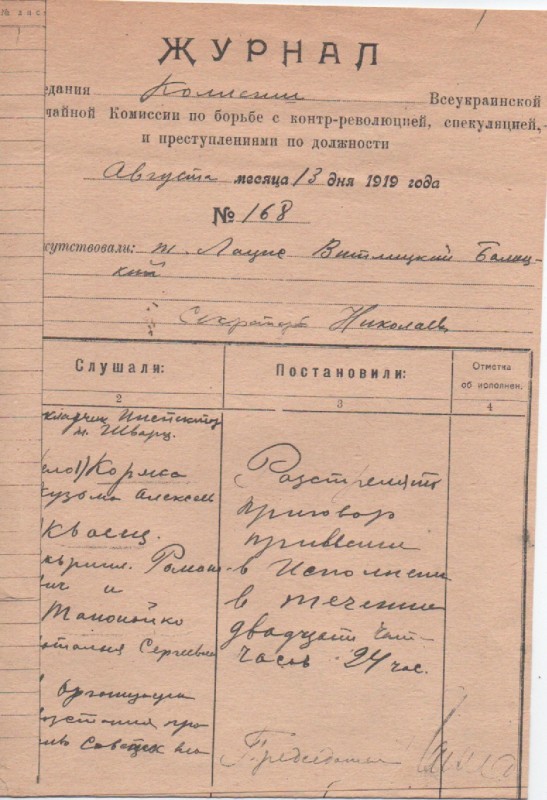 ЖУРНАЛ
едания Комиссии Всеукраинской
чайной Комиссии по борьбе с контр-революцией, спекуляцией,
и преступлениями по должности
Августа месяца 13 дня 1919 года
№ 168
сутствовали: т. Лацис Витлицкий Балиц-
кий
Секретарь Николаев
Слушали:
Постановили:
Отметка
об исполнен.
2
3
4
т. Шварц.
Коржа
Кузьма Алексее
Роман
вич и
Сергеевна
Организация
возстания про
Советск вла
Разстрелять
приговор
привести
в исполнени
в течении
двадцати чет
часов 24 час.
Председатель